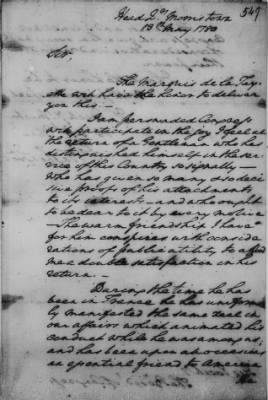 549
Head Qrs Morristown
13th May 1780
Sir,
The Marquis de la Fay-
ette will have the honor to deliver
you this.—
I am persuaded Congress
will participate in the joy I feel at
the return of a Gentleman who has
distinguished himself in the ser-
vice of this Country so signally—
who has given so many and deci-
sive proofs of his attachment
to its interests—and who ought
to be dear to it by every motive
—The warm friendship I have
for him conspires with conside-
rations of public utility to afford
me a double satisfaction in his
return.—
During the time he has
been in France he has uniform-
ly manifested the same zeal in
our affairs which animated his
conduct while he was among us;
and has been upon all occasions
an essential friend to America